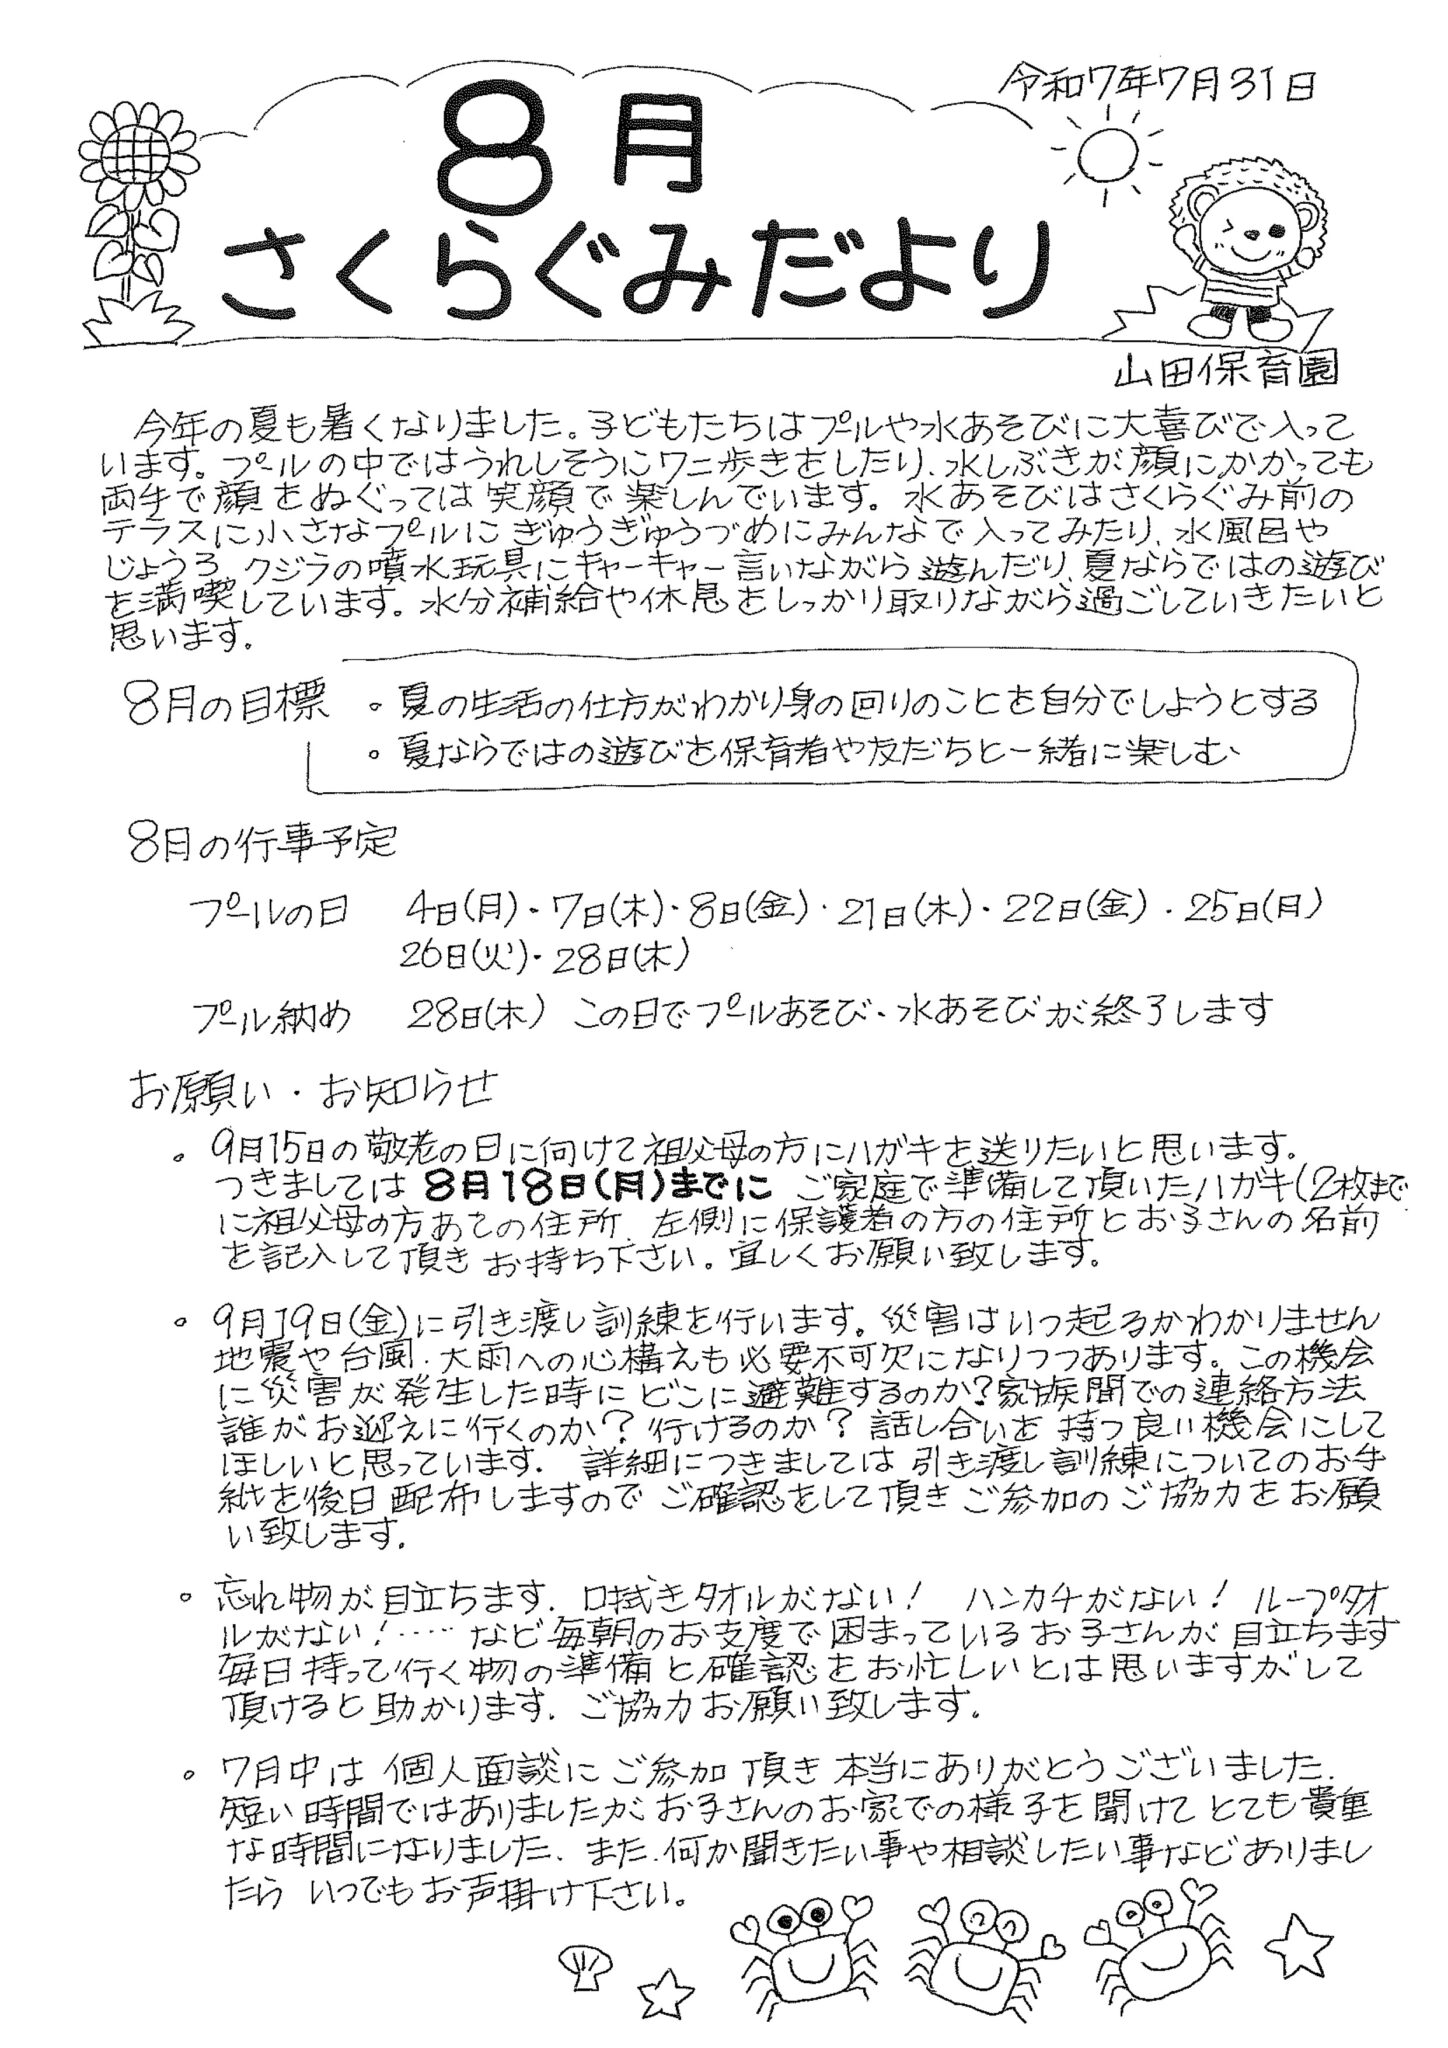 令和7年7月31日
8月
さくらぐみだより
山田保育園
今年の夏も暑くなりました。子どもたちはプールや水あそびに大喜びで入って
います。プールの中ではうれしそうにワニ歩きをしたり、水しぶきが顔にかかっても
両手で顔をぬぐっては笑顔で楽しんでいます。水あそびはさくらぐみ前の
テラスに小さなプールにぎゅうぎゅうづめにみんなで入ってみたり、水風呂や
じょうろ、クジラの噴水玩具にキャーキャー言いながら遊んだり、夏ならではの遊び
を満喫しています。水分補給や休息をしっかり取りながら過ごしていきたいと
思います。
8月の目標 。夏の生活の仕方がわかり身の回りのことを自分でしようとする
。夏ならではの遊びを保育者や友だちと一緒に楽しむ、
8月の行事予定
プールの日 4日(月)・7日(木)・8日(金)・21日(木)・22日(金)・25日(月)
26日(火)・28日(木)
プール納め 28日(木) この日でプールあそび・水あそびが終了します
お願い・お知らせ
。9月15日の敬老の日に向けて祖父母の方にハガキを送りたいと思います。
つきましては8月18日(月)までに ご家庭で準備して頂いたハガキ(2枚まで
に祖父母の方あての住所、左側に保護者の方の住所とお子さんの名前
を記入して頂きお持ち下さい。宜しくお願い致します。
。9月19日(金)に引き渡し訓練を行います。災害はいつ起るかわかりません
地震や台風、大雨への心構えも必要不可欠になりつつあります。この機会
に災害が発生した時にどこに避難するのか?家族間での連絡方法
誰がお迎えに行くのか?行けるのか?話し合いを持つ良い機会にして
ほしいと思っています。詳細につきましては引き渡し訓練についてのお手
紙を後日配布しますのでご確認をして頂きご参加のご協力をお願
い致します。
。忘れ物が目立ちます。口拭きタオルがない! ハンカチがない! ループタオ
ルがない!……など毎朝のお支度で困まっているお子さんが目立ちます
毎日持って行く物の準備と確認をお忙しいとは思いますがして
頂けると助かります。ご協力お願い致します。
。7月中は個人面談にご参加頂き本当にありがとうございました。
短い時間ではありましたがお子さんのお家での様子を聞けてとても貴重
な時間になりました。また、何か聞きたい事や相談したい事などありまし
たらいつでもお声掛け下さい。